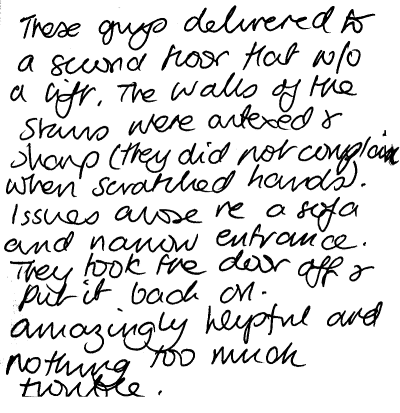 These guys delivered to
a second floor flat w/o
a lift. The walls of the
stairs were artexed &
sharp (they did not complain
when scratched hands).
Issues arose re a sofa
and narrow entrance.
They took the door off &
put it back on.
amazingly helpful and
nothing too much
trouble.